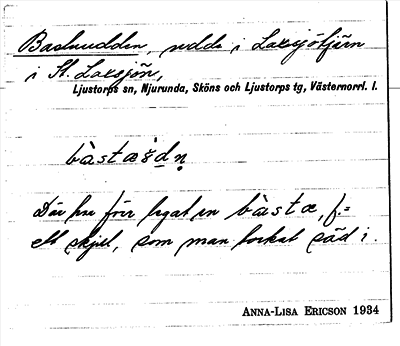 Bastuudden, udde i Laxsjötjärn
i St. Laxsjön,
Ljustorps sn, Njurunda, Sköns och Ljustorps tg, Västernorrl. l.
Där har förr legat en bàstæ, f.=
ett skjul, som man torkat säd i.
ANNA-LISA ERICSON 1934